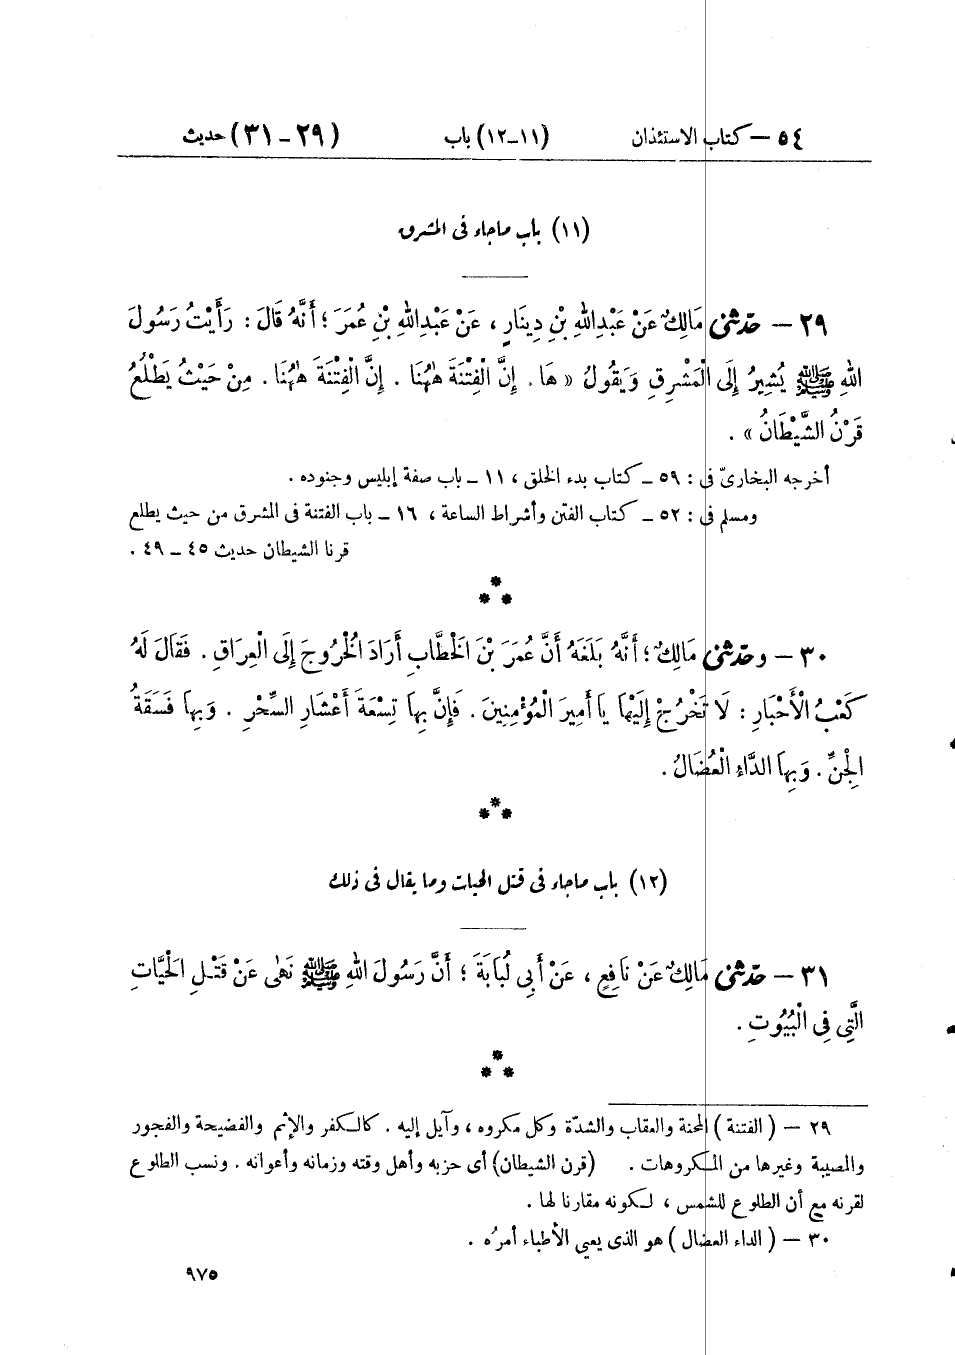 ٥٤ – كتاب الاستئذان (١١–١٢) باب (٢٩ – ٣١) حديث
(١١) باب ماجاء فى المشرق
٢٩ – حدّثنى مَالِكٌ عَنْ عَبْدِ اللهِ بْنِ دِينَارٍ ، عَنْ عَبْدِ اللهِ بْنِ عُمَرَ ؛ أَنَّهُ قَالَ : رَأَيْتُ رَسُولَ
اللهِ ﷺ يُشِيرُ إِلَى الْمَشْرِقِ وَيَقُولُ « هَا . إِنَّ الْفِتْنَةَ هٰهُنَا . إِنَّ الْفِتْنَةَ هٰهُنَا . مِنْ حَيْثُ يَطْلُعُ
قَرْنُ الشَّيْطَانُ » .
أخرجه البخارىّ فى : ٥٩ – كتاب بدء الخلق ، ١١ – باب صفة إبليس وجنوده .
ومسلم فى : ٥٢ – كتاب الفتن وأشراط الساعة ، ١٦ – باب الفتنة فى المشرق من حيث يطلع
قرنا الشيطان حديث ٤٥ – ٤٩ .
***
٣٠ – وحدّثنى مَالِكٌ ؛ أَنَّهُ بَلَغَهُ أَنَّ عُمَرَ بْنَ الْخَطَّابِ أَرَادَ الْخُرُوجَ إِلَى الْعِرَاقِ . فَقَالَ لَهُ
كَعْبُ الْأَحْبَارِ : لَا تَخْرُجْ إِلَيْهَا يَا أَمِيرَ الْمُؤْمِنِينَ . فَإِنَّ بِهَا تِسْعَةَ أَعْشَارِ السِّحْرِ . وَبِهَا فَسَقَةُ
الْجِنِّ . وَبِهَا الدَّاءُ الْعُضَالُ .
***
(١٢) باب ماجاء فى قتل الحيات وما يقال فى ذلك
٣١ – حدّثنى مَالِكٌ عَنْ نَافِعٍ ، عَنْ أَبِي لُبَابَةَ ؛ أَنَّ رَسُولَ اللهِ ﷺ نَهَى عَنْ قَتْلِ الْحَيَّاتِ
الَّتِي فِي الْبُيُوتِ .
***
٢٩ – ( الفتنة ) المحنة والعقاب والشدّة وكل مكروه ، وآيل إليه . كالكفر والإثم والفضيحة والفجور
والمصيبة وغيرها من المكروهات . (قرن الشيطان) أى حزبه وأهل وقته وزمانه وأعوانه . ونسب الطلوع
لقرنه مع أن الطلوع للشمس ، لكونه مقارنا لها .
٣٠ – ( الداء العضال ) هو الذى يعيي الأطباء أمرُه .
٩٧٥